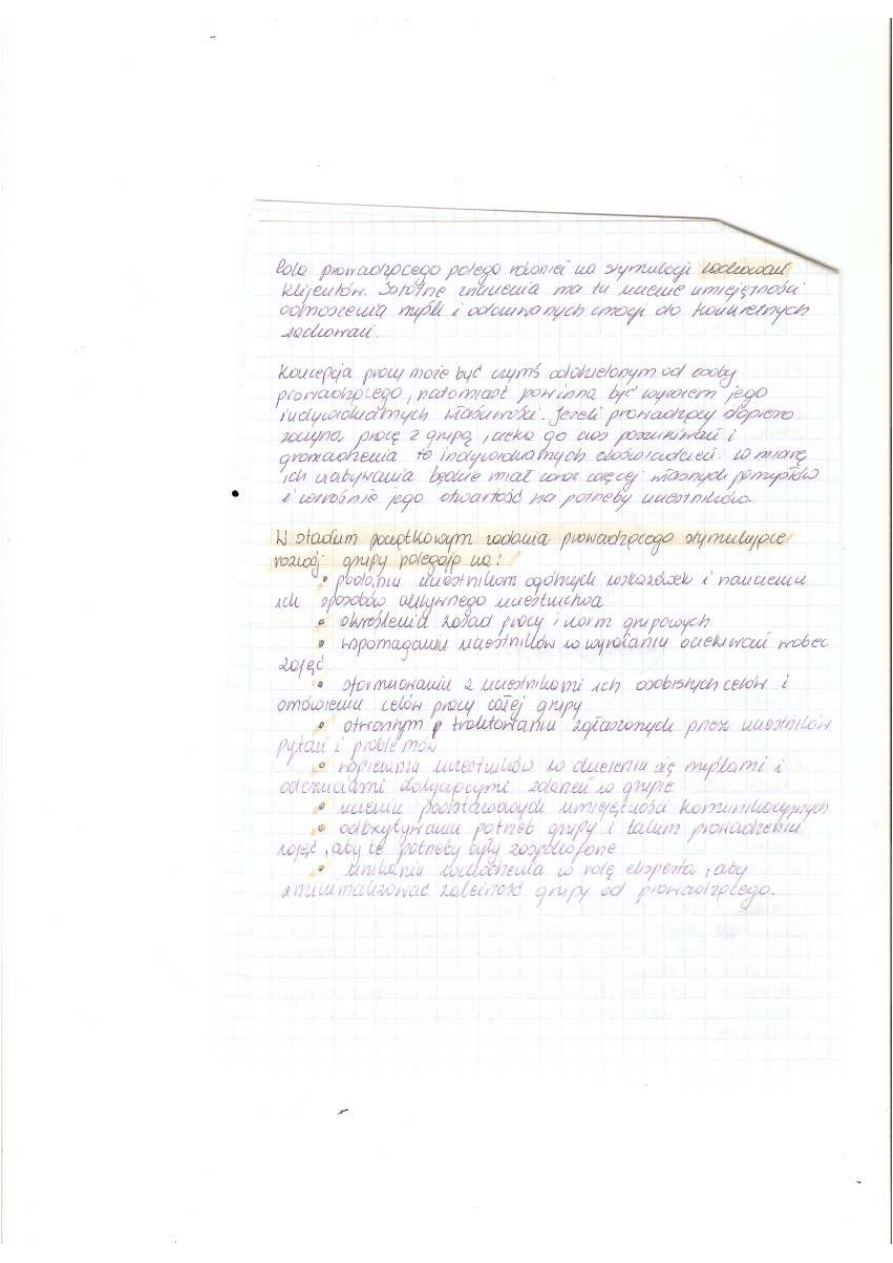 Rola prowadzącego polega również na stymulacji zachowań
klijentów. Istotne znaczenia ma tu uczenie umiejętności
odnoszenia myśli i odczuwanych emocji do konkretnych
zachowań.
Koncepcja pracy może być czymś oddzielonym od osoby
prowadzącego, natomiast powinna być wyrazem jego
indywidualnych właściwości. Jeżeli prowadzący dopiero
zaczyna pracę z grupą, czeka go czas poszukiwań i
gromadzenia to indywidualnych doświadczeń. W miarę
ich nabywania będzie miał coraz więcej własnych pomysłów
i wzrośnie jego otwartość na potrzeby uczestników.
W stadium początkowym zadania prowadzącego stymulujące
rozwój grupy polegają na:
• podaniu uczestnikom ogólnych wskazówek i nauczeniu
ich sposobów aktywnego uczestnictwa
• określenia zasad pracy i norm grupowych
• wspomaganiu uczestników w wyrażaniu oczekiwań wobec
zajęć
• sformuowaniu z uczestnikami ich osobistych celów i
omówieniu celów pracy całej grupy
• otwartym traktowaniu zgłaszonych przez uczestników
pytań i problemów
• wspieraniu uczestników w dzieleniu się myślami i
odczuciami dotyczącymi zdarzeń w grupie
• uczeniu podstawowych umiejętności komunikacyjnych
• odczytywaniu potrzeb grupy i takim prowadzeniu
zajęć, aby te potrzeby były zaspokojone
• unikaniu wchodzenia w rolę eksperta, aby
zminimalizować zależność grupy od prowadzącego.